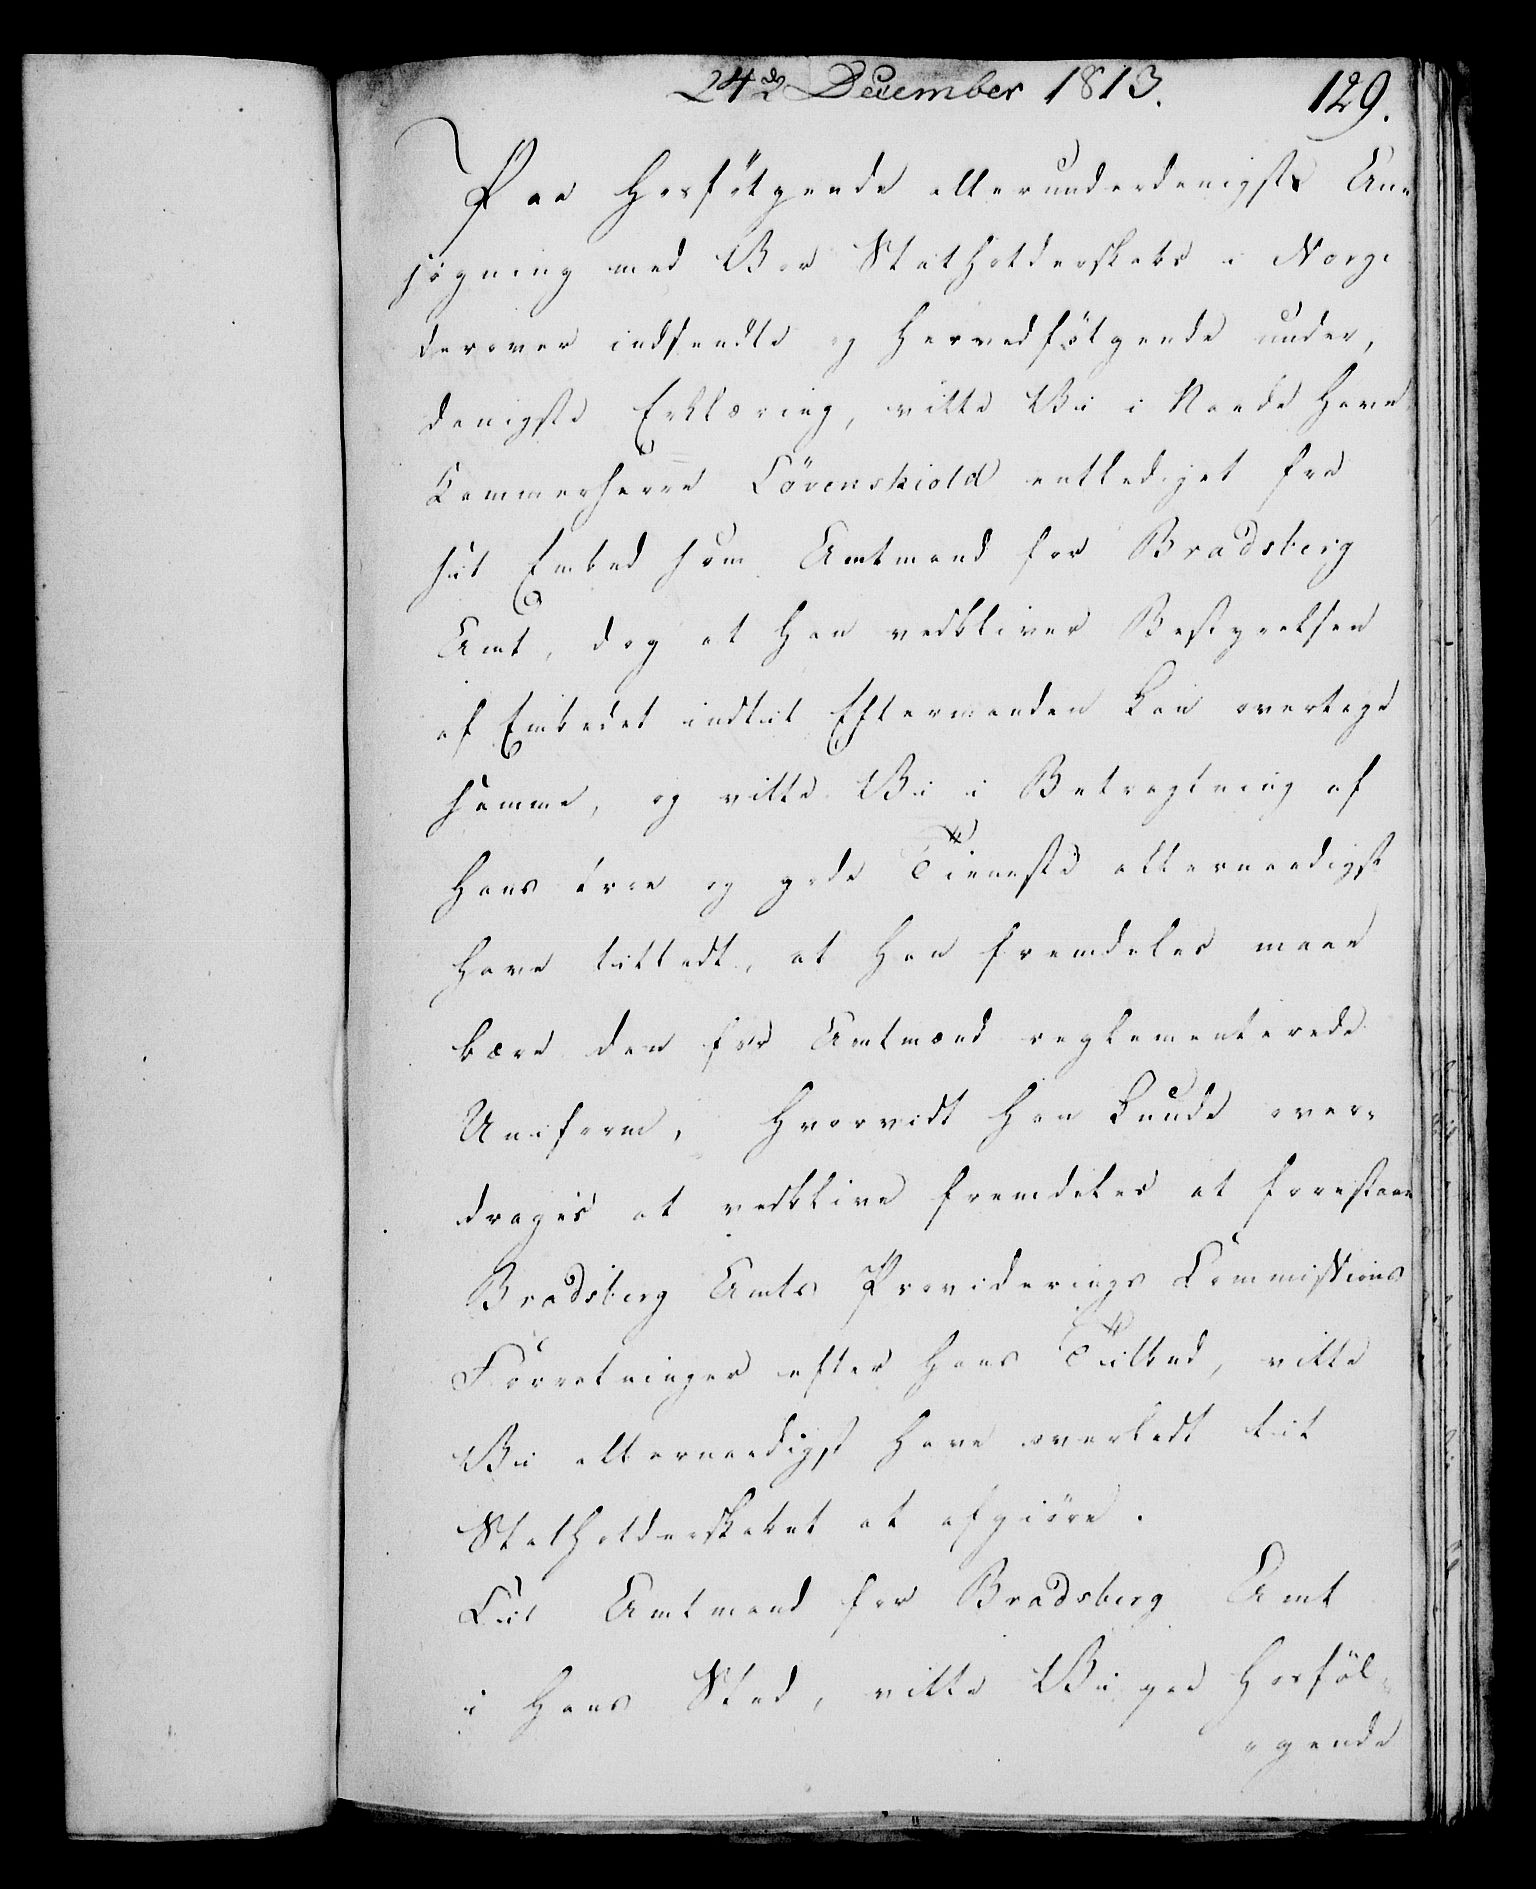 24de December 1813.
129.
Paa Hosfölgende allerunderdanigste An-
sögning med Vor Statholderskabs i Norge
derover indsendte og Hervedfölgende under,
danigste Erklæring, ville Vi i Naade Have
Kammerherre Lövenskiold entlediget fra
sit Embed som Amtmand for Bradsberg
Amt, dog at Han vedbliver Bestyrelsen
af Embedet indtil Eftermanden kan overtage
samme, og ville Vi i Betragtning af
Hans troe og gode Tieneste allernaadigst
Have tilladt, at Han fremdeles maae
bære den for Amtmænd reglementerede
Uniform, Hvorvidt Han kunde over-
drages at vedblive fremdeles at forestaae
Bradsberg Amts Provideringss Commissions
Forretninger efter Hans Tilbud, ville
Vi allernaadigst Have overladt til
Statholderskabet at afgiöre.
Til Amtmand for Bradsberg Amt
i Hans Sted, ville Vi paa Hosföl-
gende